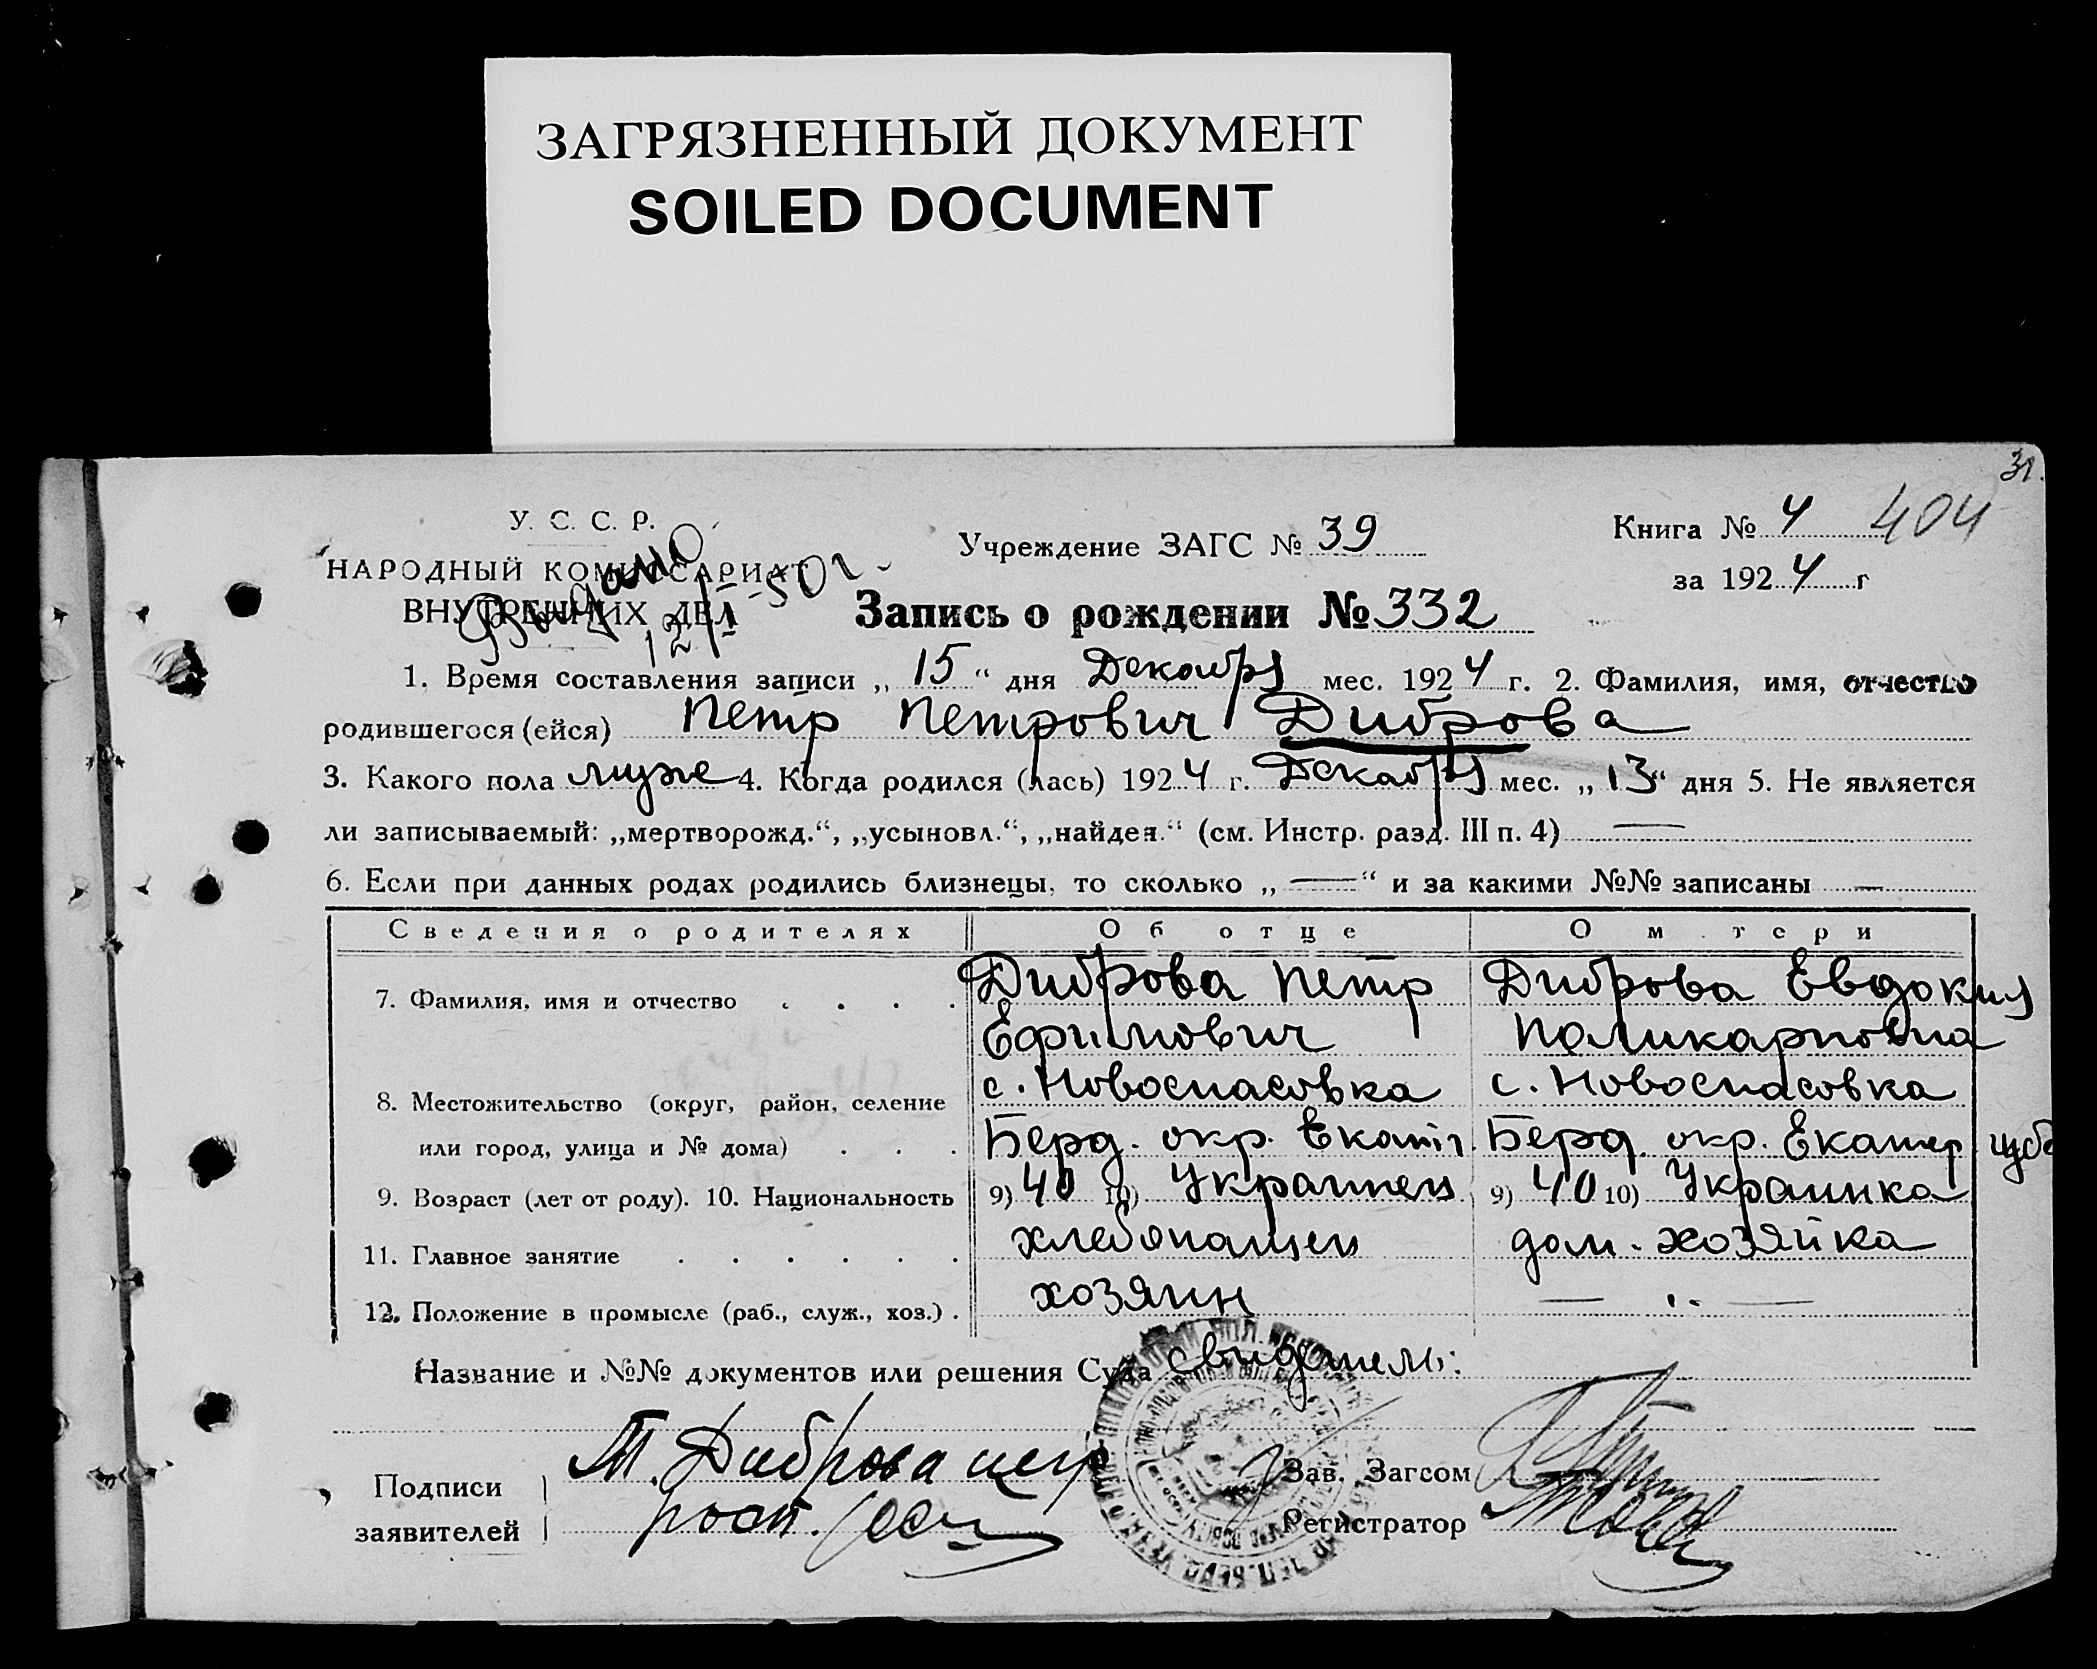 ЗАГРЯЗНЕННЫЙ ДОКУМЕНТ
SOILED DOCUMENT
31.
У. С. С. Р.
НАРОДНЫЙ КОМИССАРИАТ
ВНУТРЕННИХ ДЕЛ
Выдано
12/II-50 г.
Учреждение ЗАГС № 39
Книга № 4 404
за 1924 г
Запись о рождении № 332
1. Время составления записи „ 15 “ дня Декабря мес. 1924 г. 2. Фамилия, имя, отчество
родившегося (ейся) Петр Петрович Диброва
3. Какого пола муже 4. Когда родился (лась) 1924 г. Декабря мес. „ 13 “ дня 5. Не является
ли записываемый: „мертворожд.“, „усыновл.“, „найден.“ (см. Инстр. разд. III п. 4) —
6. Если при данных родах родились близнецы, то сколько „ — “ и за какими №№ записаны —
Сведения о родителях Об отце О м тери
7. Фамилия, имя и отчество . . . . Диброва Петр Диброва Евдокия
Ефимович Поликарповна
с. Новоспасовка с. Новоспасовка
8. Местожительство (округ, район, селение
или город, улица и № дома) . . . Берд. окр. Екатер. Берд. окр. Екатер губ
9. Возраст (лет от роду). 10. Национальность 9) 40 10) Украинец 9) 40 10) Украинка
11. Главное занятие . . . . . . хлебопашец дом. хозяйка
12. Положение в промысле (раб., служ., хоз.) . хозяин — „ —
Название и №№ документов или решения Суда свидетели:
Подписи
заявителей
П. Диброва
Зав. Загсом
Регистратор